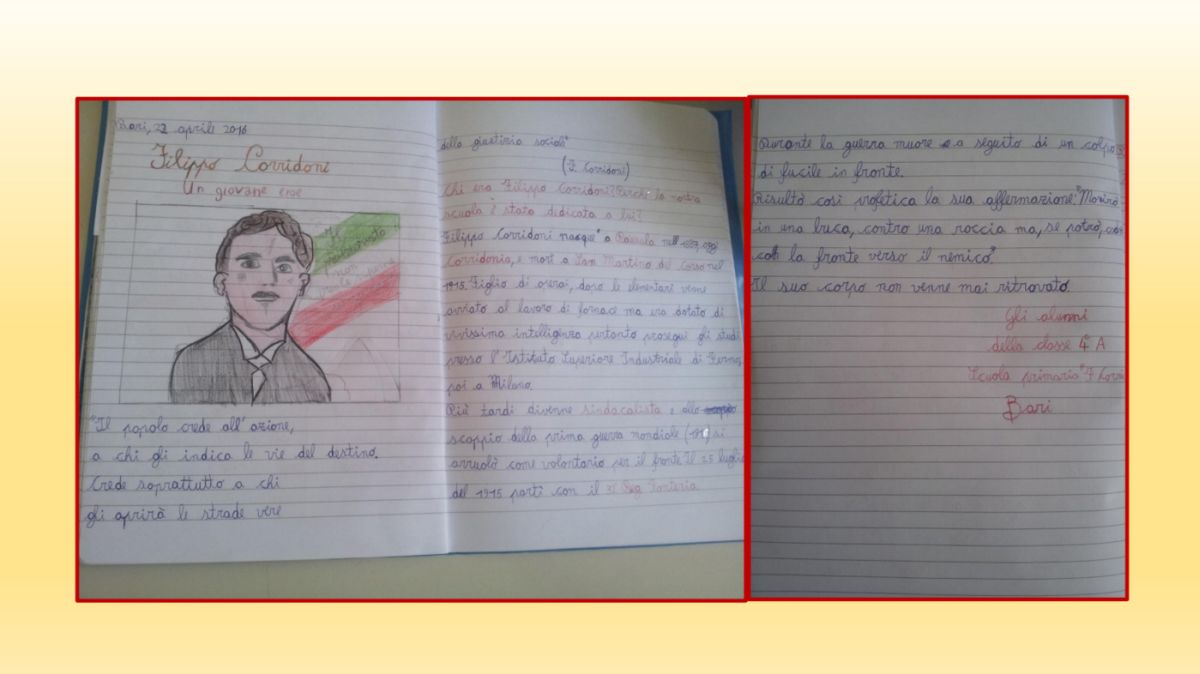 Bari, 22 aprile 2016
Filippo Corridoni
Un giovane eroe
"Il popolo crede all'azione,
a chi gli indica le vie del destino.
Crede soprattutto a chi
gli aprirà le strade vere
della giustizia sociali"
(F. Corridoni)
Chi era Filippo Corridoni? Perchè la nostra
scuola è stata dedicata a lui?
Filippo Corridoni nasque a Pausula nell'
Corridonia, e morì a San Martino del Carso nel
1915. Figlio di operai, dopo le elementari venne
avviato al lavoro di fornace ma era dotato di
vivissima intelligenza pertanto proseguì gli studi
presso l'Istituto Superiore Industriale di Fermo,
poi a Milano.
Più tardi divenne sindacalista e allo
scoppio della prima guerra mondiale si
arruolò come volontario per il fronte. Il 25 luglio
del 1915 partì con il Reg. Fanteria
Durante la guerra muore a seguito di un colpo
di fucile in fronte.
Risultò così profetica la sua affermazione: "Morirò
in una buca, contro una roccia ma, se potrò,
con la fronte verso il nemico"
Il suo corpo non venne mai ritrovato.
Gli alunni
della classe 4ª A
Scuola primaria "F. Corri
Bari